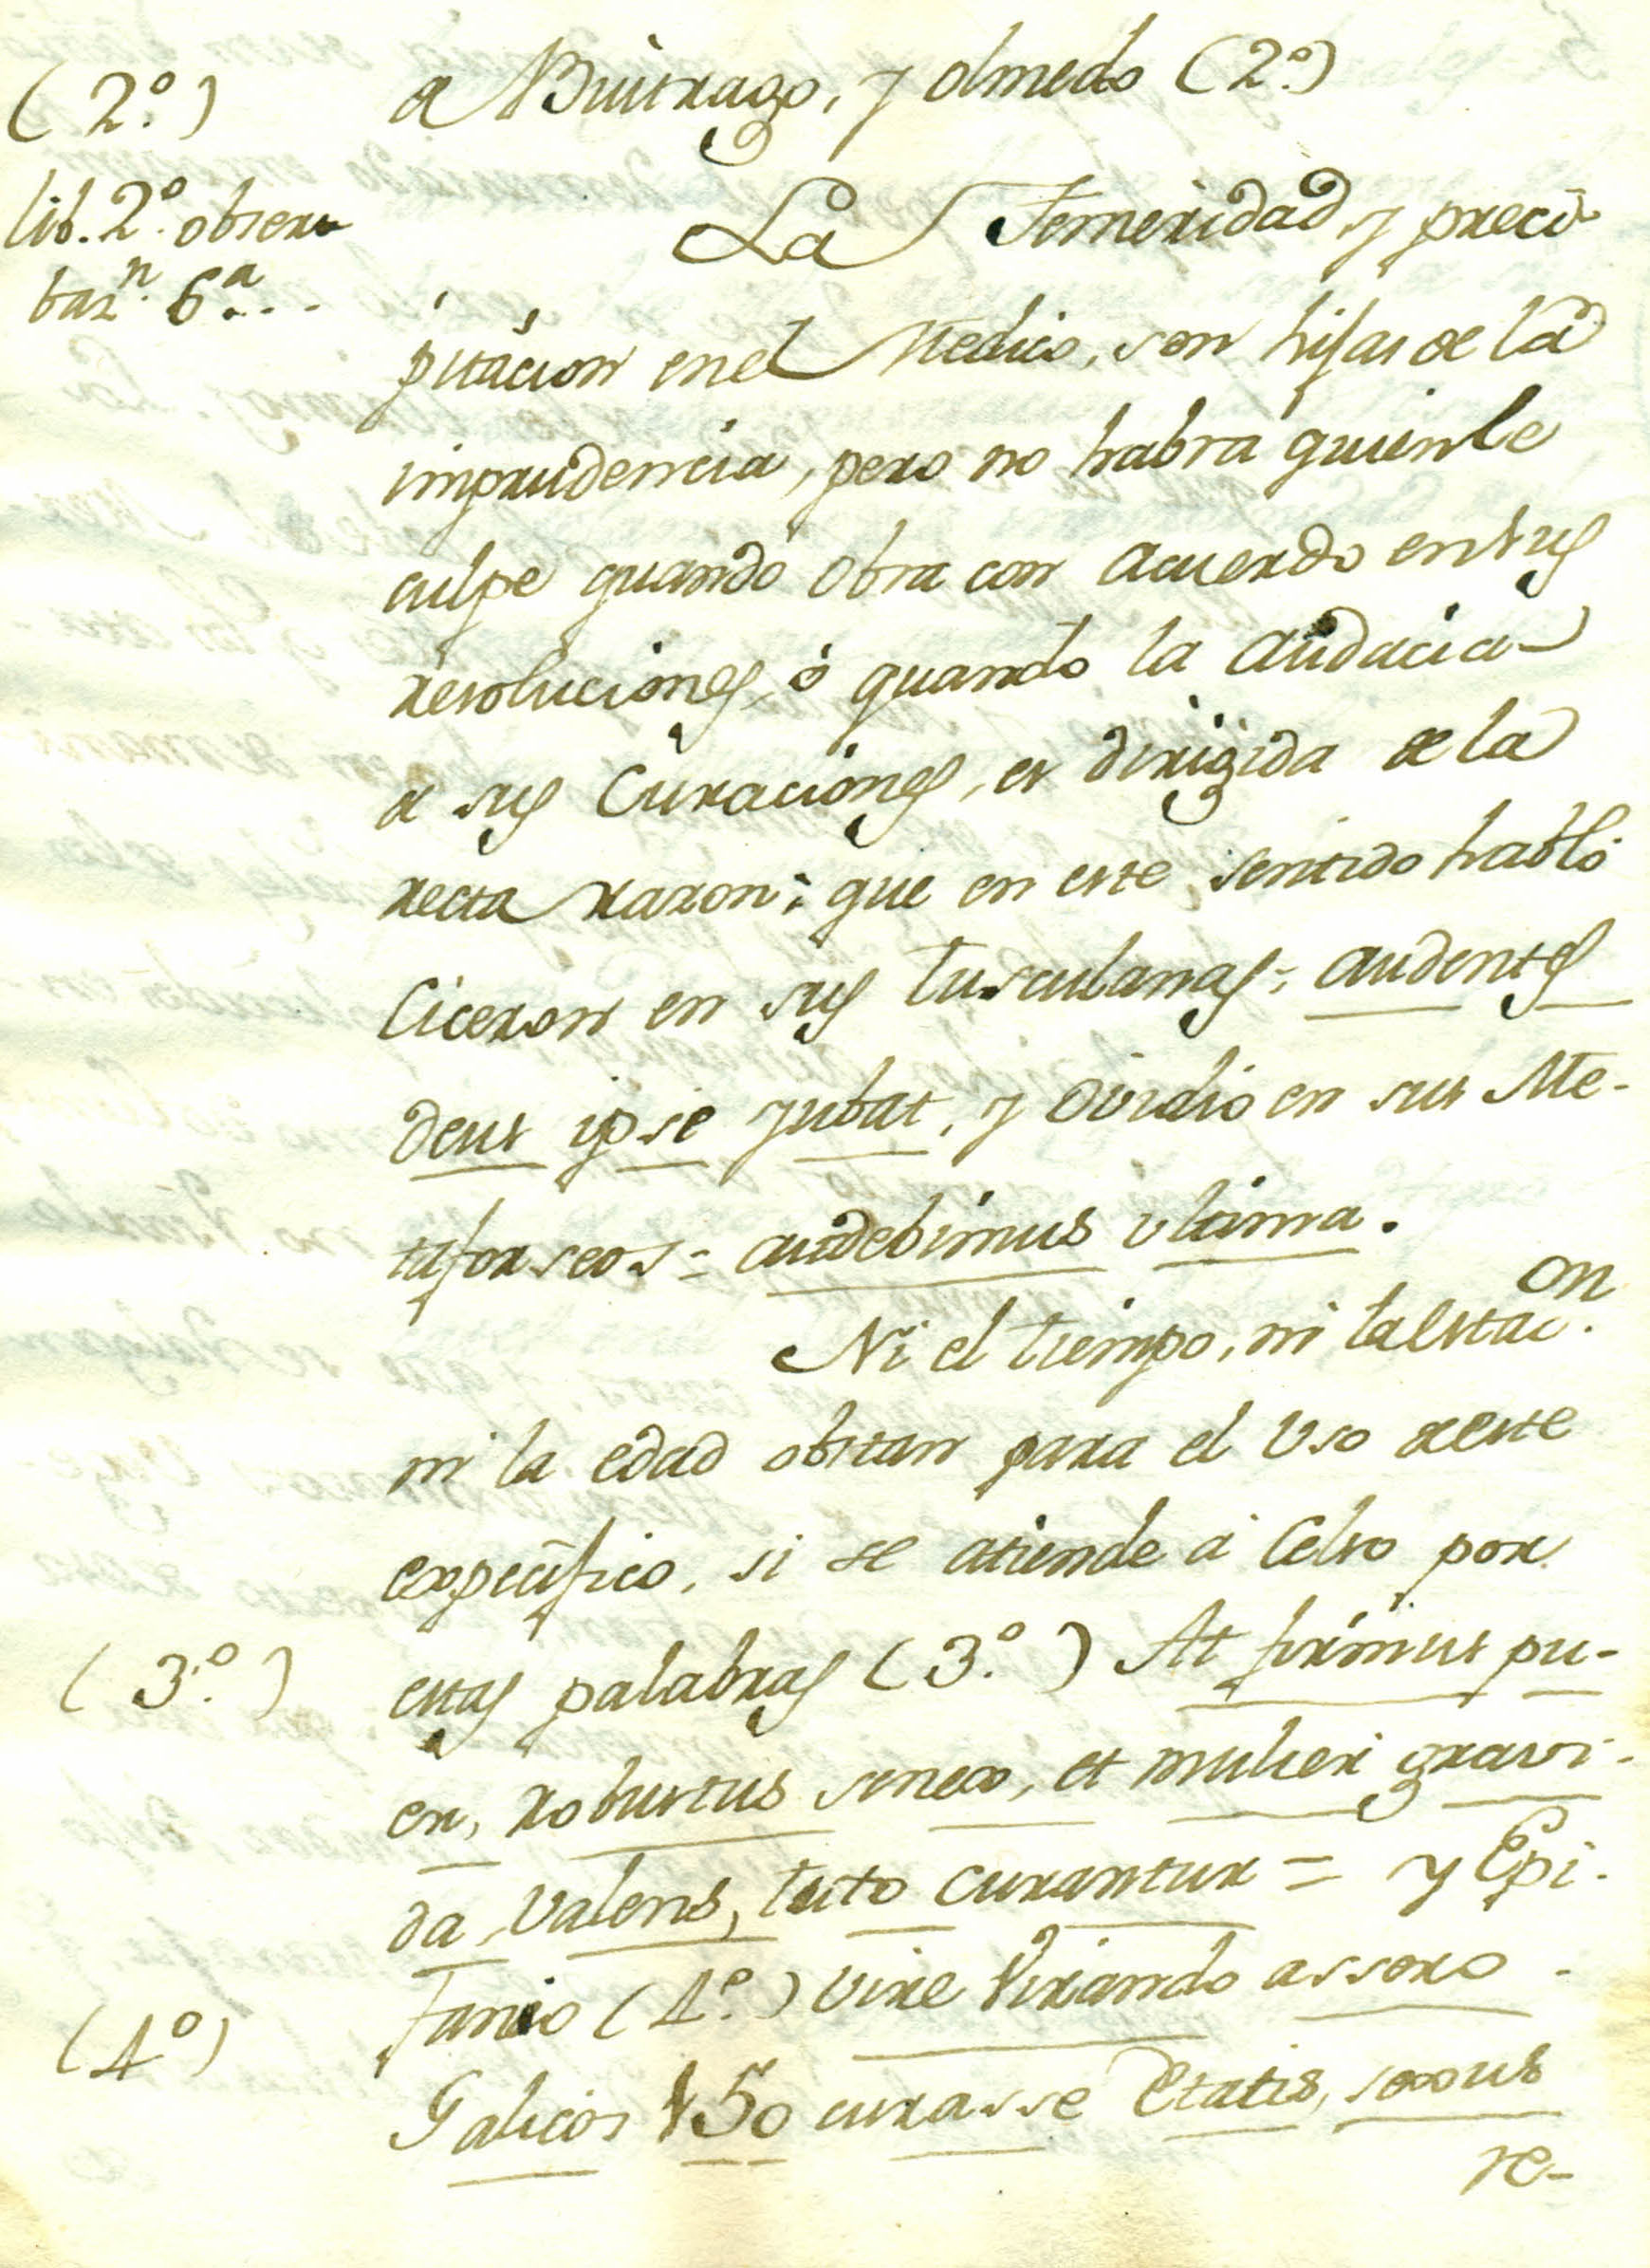 (2.º)
a Buitrago, y olmedo (2.º)
lib. 2.º observ
baz.n 6.a...
La Temeridad, y preci-
pitacion enel Medico, son hijas de la
imprudencia, pero no habra quienle
culpe quando obra con acuerdo ensus
resoluciones, ó quando la audacia
a sus Curaciones, es dirigida de la
recta razon; que en este sentido habló
Ciceron en sus tusculanas; audentes
deus ipse yubat, y Ovidio en sus Me-
taforseos = audebimus ultima.
Ni el tiempo, ni laestac.on
ni la edad obstan para el Uso deeste
expecifico, si se atiende á Celso por
(3.º)
estas palabras (3.º) At firmus pu-
er, robustus senex, et mulier gravi-
da, Valens, tuto curantur = y Epi-
(4º)
fanio (4.º) vire virando assero
Galicos 150 curasse Etatis, sexus
re-